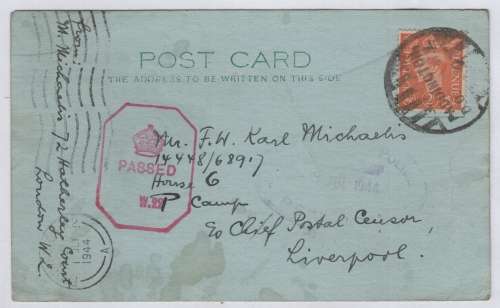 POST CARD
THE ADDRESS TO BE WRITTEN ON THIS SIDE
from:
M. Michaelis 72 Hatherley Court
London W.2.
PASSED
W.29
Mr. F.W. Karl Michaelis
14448/68917
House 6
P Camp
c/o Chief Postal Censor,
Liverpool.
1944
A
1944